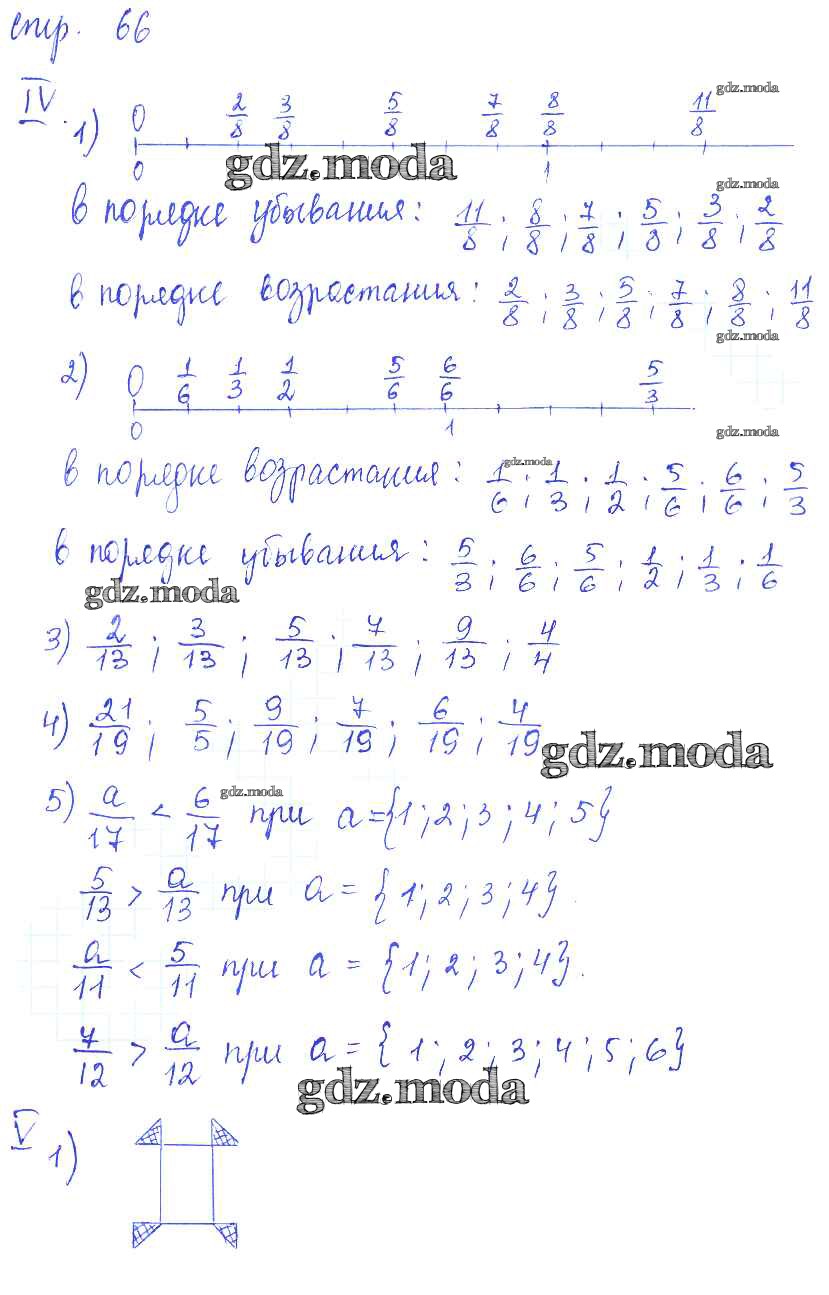 стр. 66
IV. 1) 0 2/8 3/8 5/8 7/8 8/8 11/8 gdz.moda
0 gdz.moda 1
gdz.moda
в порядке убывания: 11/8; 8/8; 7/8; 5/8; 3/8; 2/8
в порядке возрастания: 2/8; 3/8; 5/8; 7/8; 8/8; 11/8
gdz.moda
2) 0 1/6 1/3 1/2 5/6 6/6 5/3
0 1 gdz.moda
gdz.moda
в порядке возрастания: 1/6; 1/3; 1/2; 5/6; 6/6; 5/3
в порядке убывания: 5/3; 6/6; 5/6; 1/2; 1/3; 1/6
gdz.moda
3) 2/13; 3/13; 5/13; 7/13; 9/13; 4/4
4) 21/19; 5/5; 9/19; 7/19; 6/19; 4/19
gdz.moda
gdz.moda
5) a/17 < 6/17 при a={1; 2; 3; 4; 5}
5/13 > a/13 при a = {1; 2; 3; 4}.
a/11 < 5/11 при a = {1; 2; 3; 4}.
7/12 > a/12 при a = {1; 2; 3; 4; 5; 6}
gdz.moda
V 1)